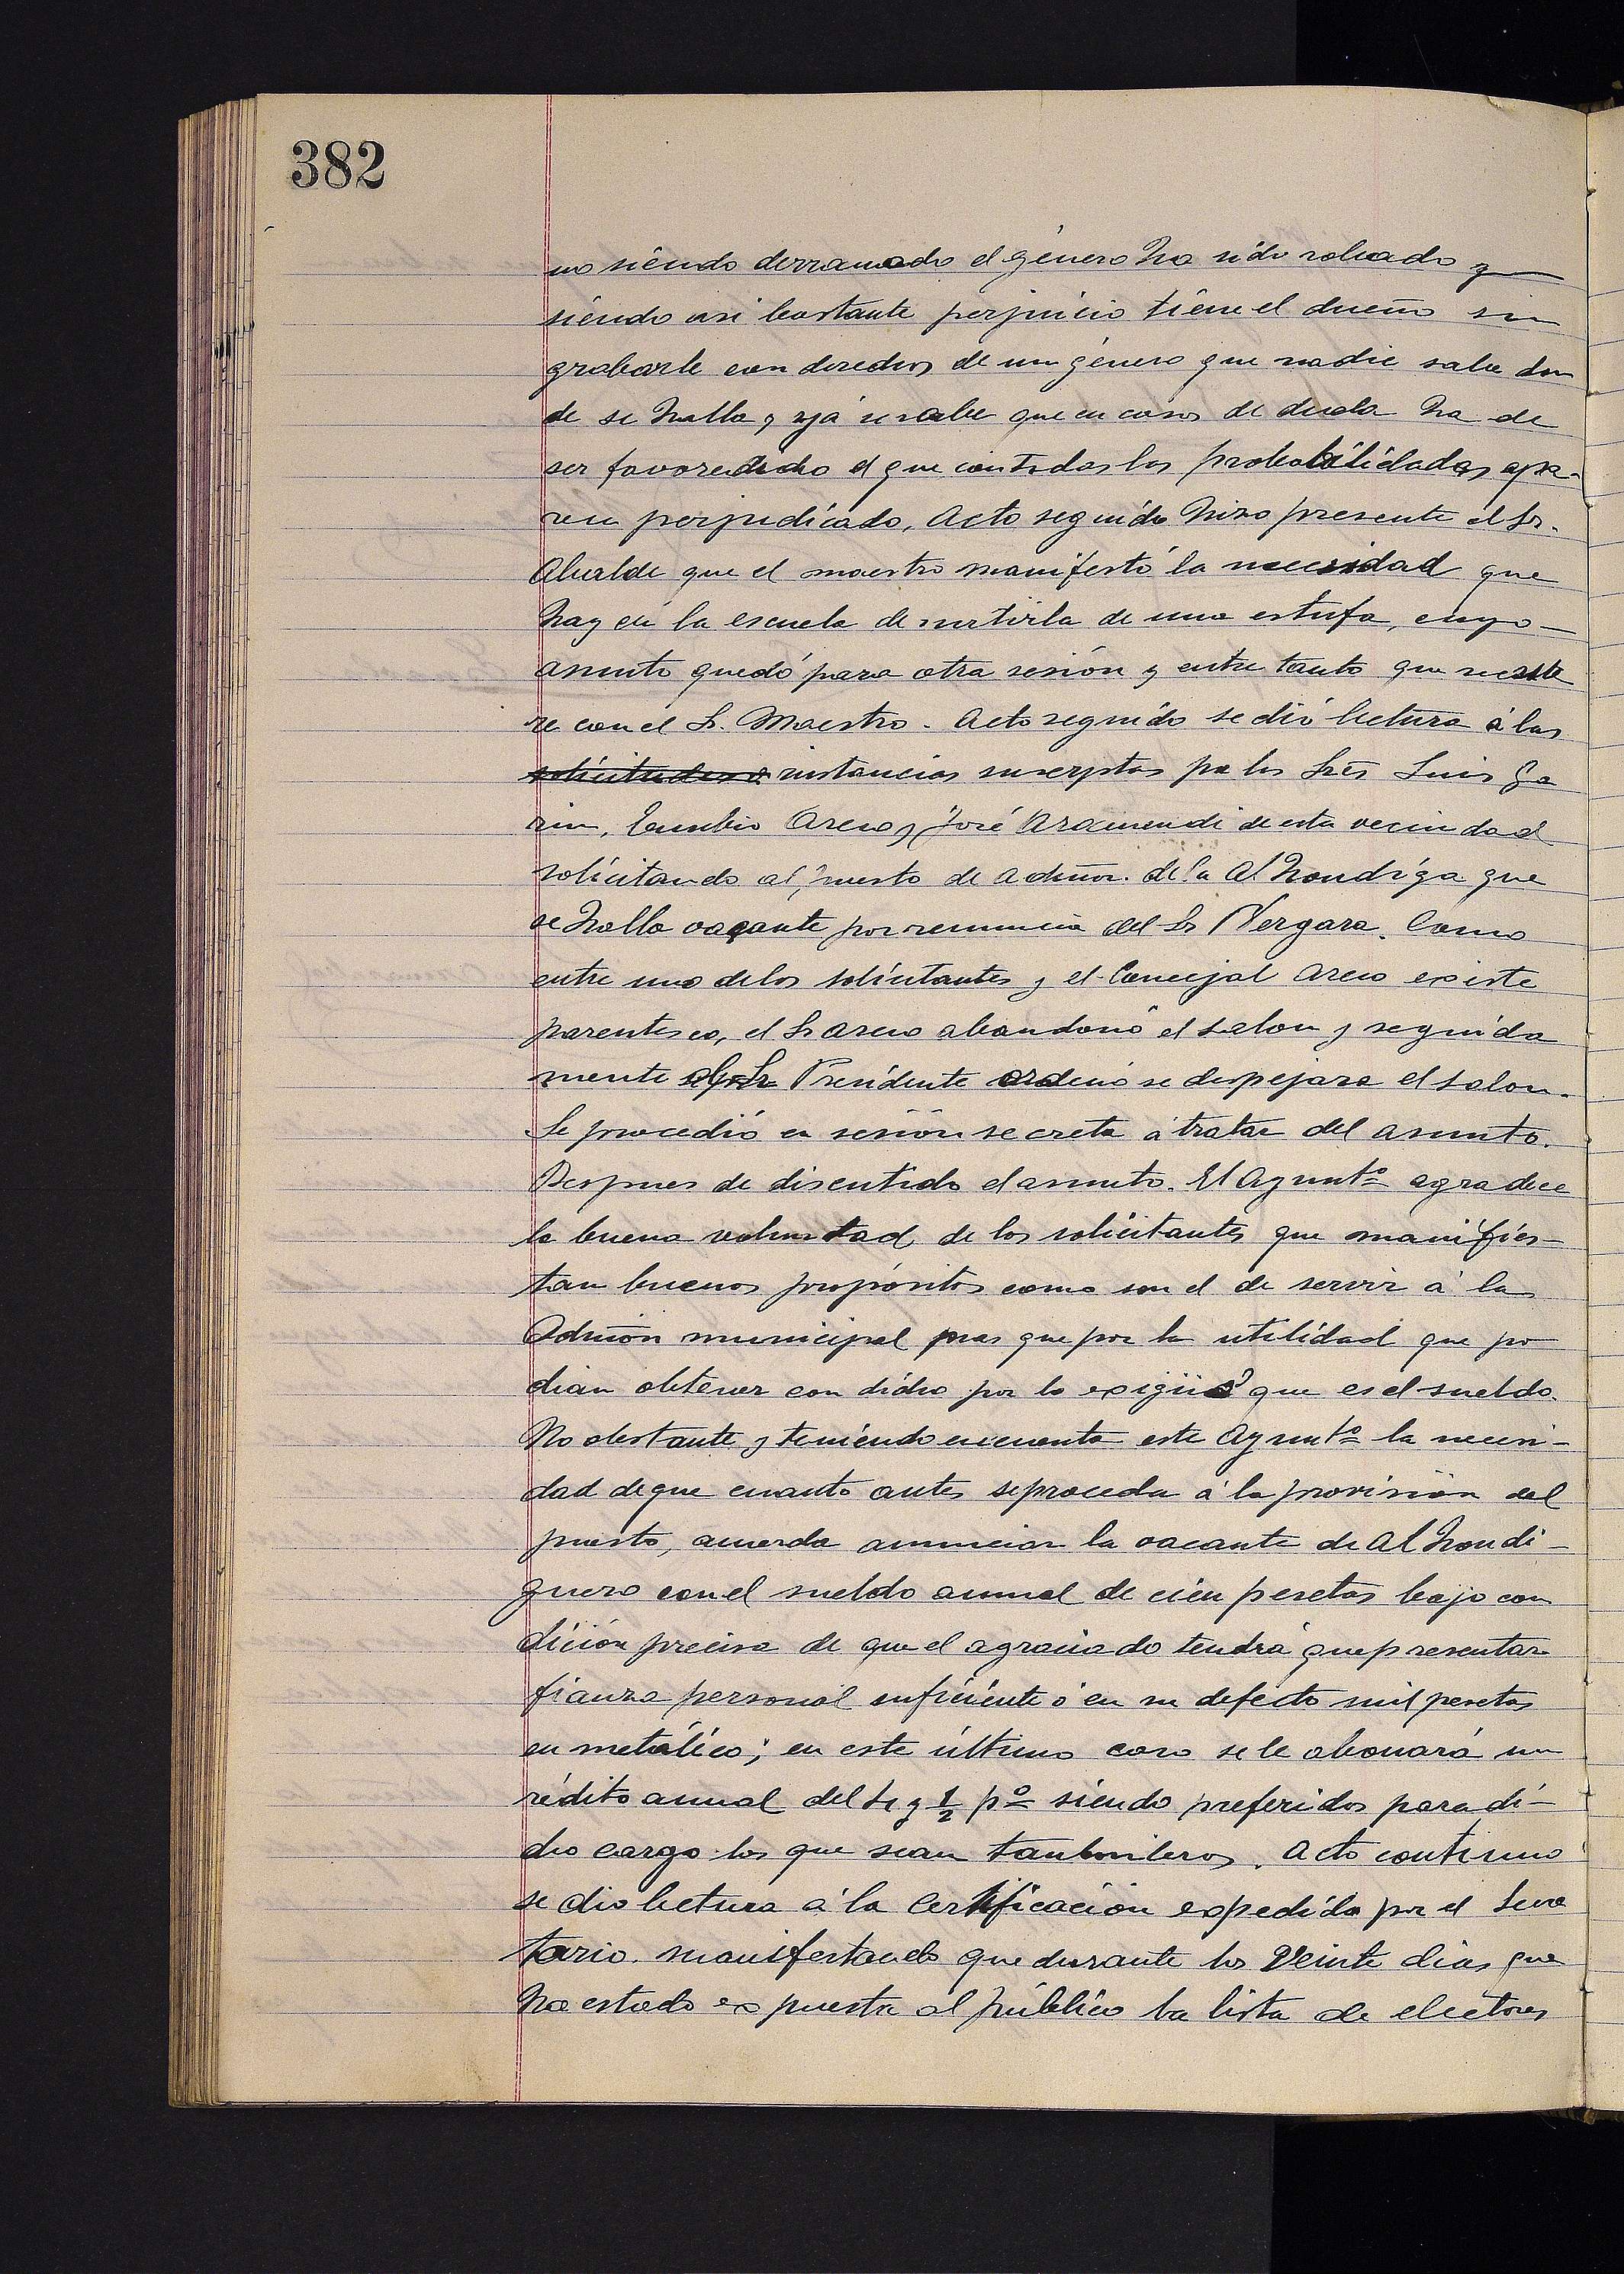 382
no siendo derramado el género ha sido robado y
siendo asi bastante perjuicio tiene el dueño sin
grabarle con derechos de un género que nadie sabe don
de se halla y ya se sabe que en casos de duda ha de
ser favorecido el que con todas las probabilidades apa-
rece perjudicado. Acto seguido hizo presente el Sr.
Alcalde que el maestro manifestó la necesidad que
hay en la escuela de surtirla de una estufa, cuyo
asunto quedó para otra sesión y entre tanto que se
re con el Sr. Maestro. Acto seguido se dió lectura á las
solicitudes é instancias suscriptas po los Sres Luis Ga
rin, Eusebio Areso y José Aramendi de esta vecindad
solicitando al puesto de Admor. de la Alhondiga que
se halla vacante por renuncia del Sr Vergara. Como
entre uno de los solicitantes y el Concejal Areso existe
parentesco, el Sr Areso abandonó el salon y seguida
mente el Sr Presidente ordenó se despejara el salon.
Se procedió en sesión secreta á tratar del asunto.
Despues de discutido el asunto. El Ayuntº agradece
la buena voluntad de los solicitantes que manifies-
tan buenos propósitos como son el de servir á la
Admon municipal mas que por la utilidad que po
dian obtener con dicho por lo exigüo que es el sueldo.
No obstante y teniendo en cuenta este Ayuntº la necesi-
dad de que cuanto antes se proceda á la provisión del
puesto, acuerda anunciar la vacante de Alhondi-
guero con el sueldo anual de cien pesetas bajo con
dición precisa de que el agraciado tendrá que presentar
fianza personal suficiente ó en su defecto mil pesetas
en metálico; en este último caso se le abonará un
rédito anual del 4 y 1/2 pº siendo preferidos para di-
cho cargo los que sean tamborileros. Acto continuo
se dio lectura á la Certificación expedida por el Secre
tario. manifestando que durante los veinte dias que
ha estado expuesta al público la lista de electores